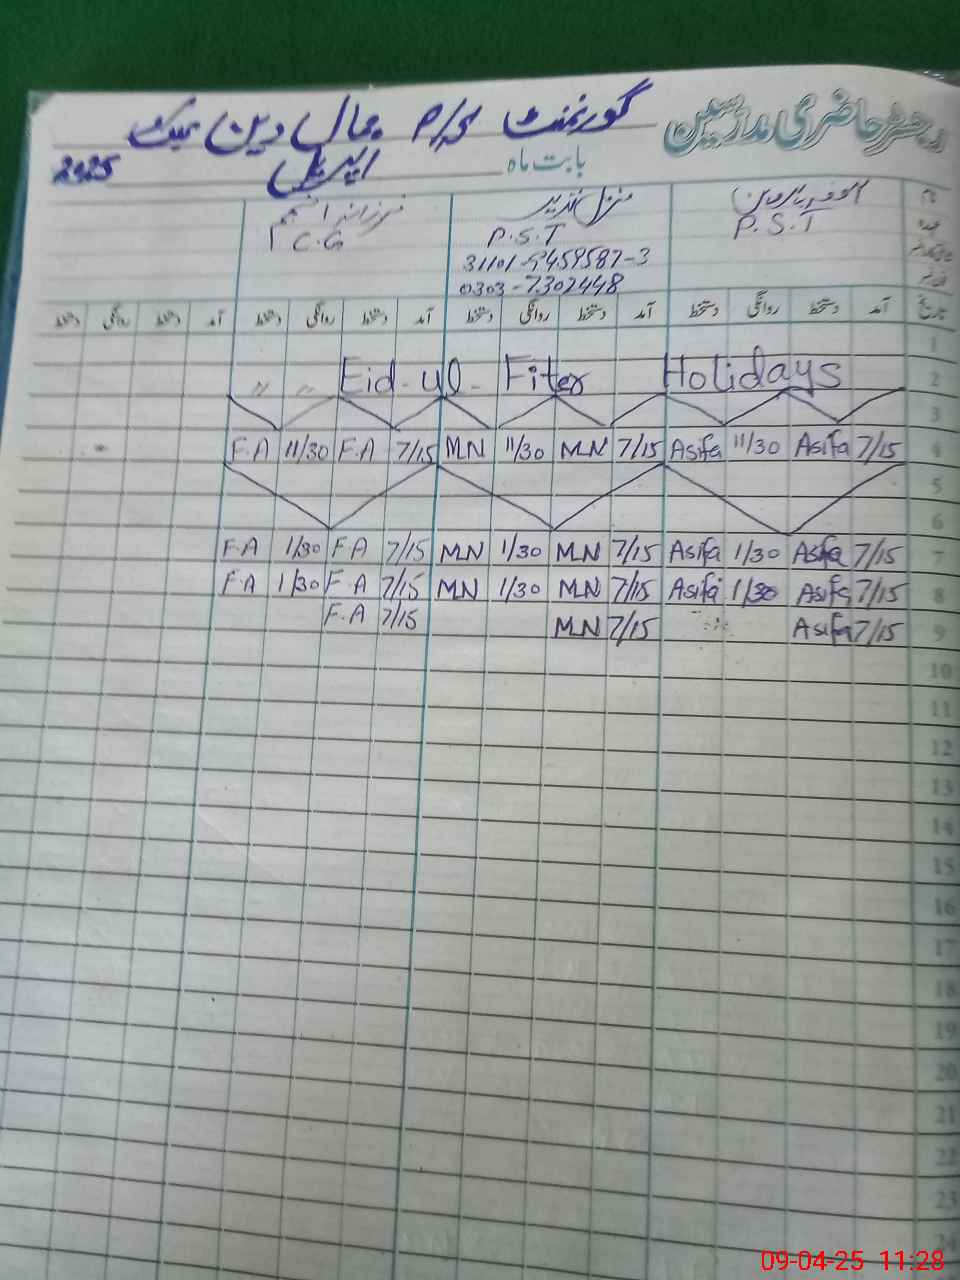 رجسٹر حاضری مدرسین گورنمنٹ جمال دین
بابت ماہ اپریل 2025
نام
عہدہ P.S.T P.S.T C.G
31101-9459587-3
0303-7302448
تاریخ آمد دستخط روانگی دستخط آمد دستخط روانگی دستخط آمد دستخط روانگی دستخط آمد دستخط روانگی دستخط
1
〃 〃 Eid-ul-Fiter Holidays 2
3
F.A 11/30 F.A 7/15 MN 11/30 MN 7/15 Asifa 11/30 Asifa 7/15 4
5
6
F.A 1/30 F.A 7/15 MN 1/30 MN 7/15 Asifa 1/30 Asifa 7/15 7
F.A 1/30 F.A 7/15 MN 1/30 MN 7/15 Asifa 1/30 Asifa 7/15 8
F.A 7/15 MN 7/15 Asifa 7/15 9
10
11
12
13
14
15
16
17
18
19
20
21
22
23
24
09-04-25 11:28